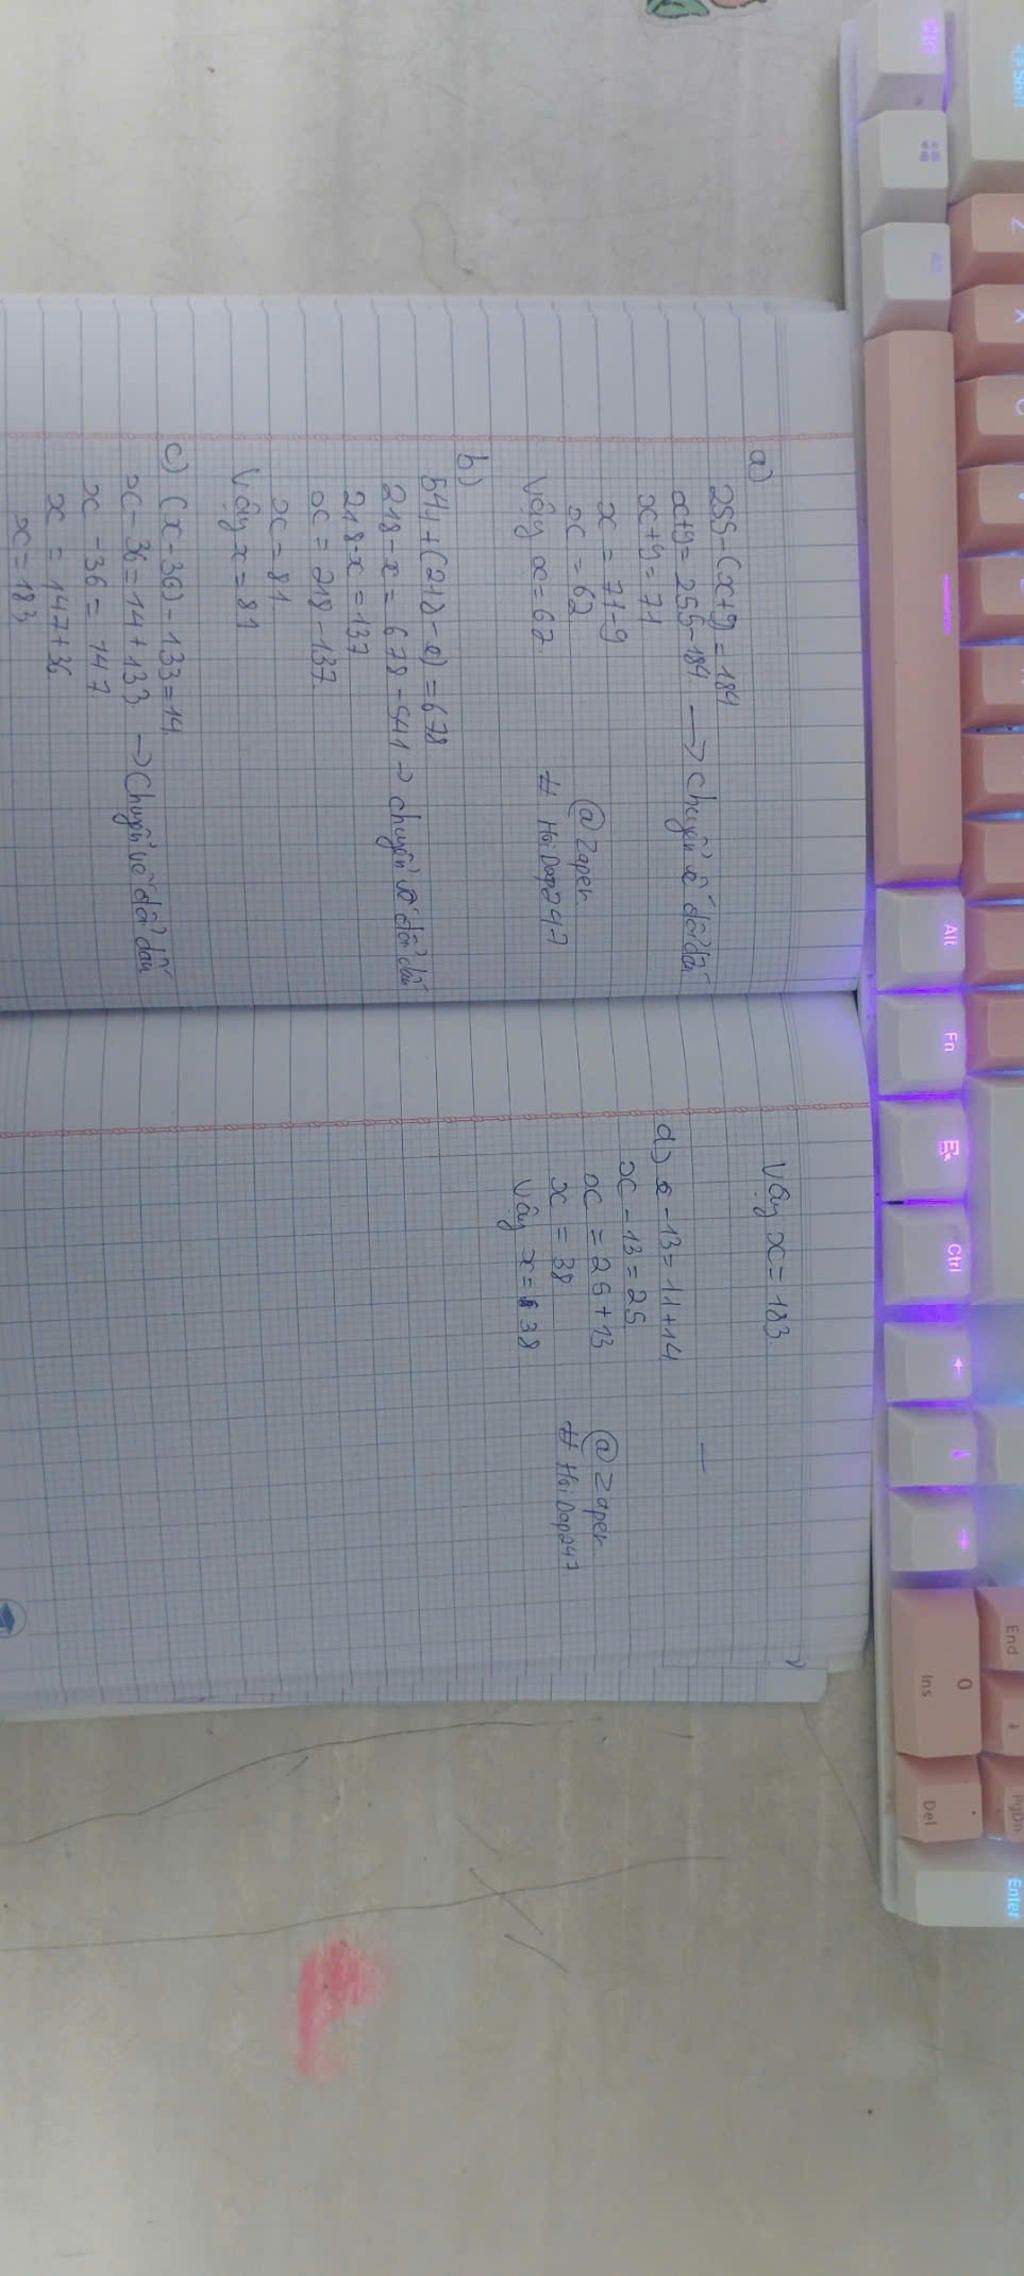 a)
255-(x+9)=184
x+9=255-184 → chuyển vế đổi dấu
x+9=71
x=71-9
x=62
Vậy x=62
@Zaper
# HoiDap247
b)
541+(218-x)=678
218-x=678-541 → chuyển vế đổi dấu
218-x=137
x=218-137
x=81
Vậy x=81
c) (x-36)-133=14
x-36=14+133 → Chuyển vế đổi dấu
x-36=147
x=147+36
x=183
Vậy x=183.
d) x-13=11+14
x-13=25
x=25+13
x=38
Vậy x=38
@Zaper
# HoiDap247
Z
X
C
V
Alt
Fn
Ctrl
←
↓
→
0
Ins
Del
End
PgDn
Enter